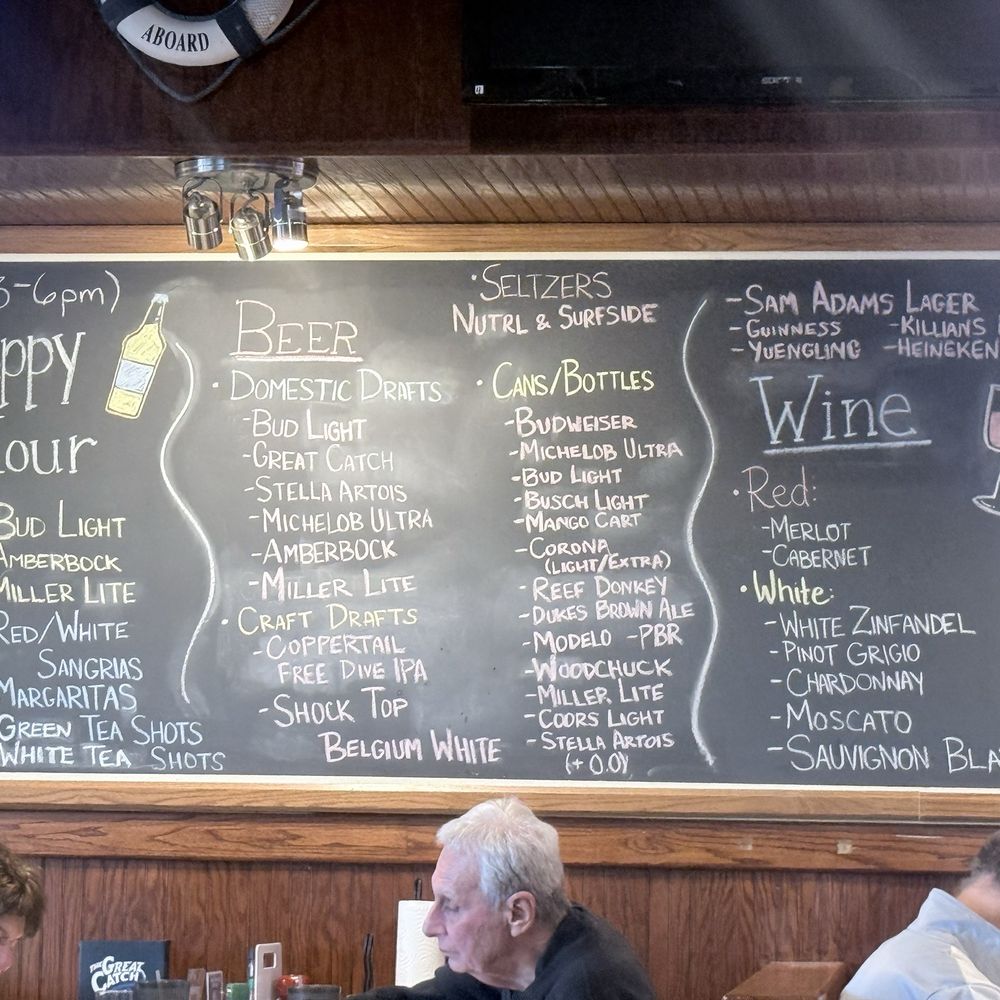 ABOARD
3-6pm)
ppy
our
BUD LIGHT
AMBERBOCK
MILLER LITE
RED/WHITE
SANGRIAS
MARGARITAS
GREEN TEA SHOTS
WHITE TEA SHOTS
BEER
• DOMESTIC DRAFTS
-BUD LIGHT
-GREAT CATCH
-STELLA ARTOIS
-MICHELOB ULTRA
-AMBERBOCK
-MILLER LITE
• CRAFT DRAFTS
-COPPERTAIL
FREE DIVE IPA
-SHOCK TOP
BELGIUM WHITE
• SELTZERS
NUTRL & SURFSIDE
• CANS/BOTTLES
-BUDWEISER
-MICHELOB ULTRA
-BUD LIGHT
-BUSCH LIGHT
-MANGO CART
-CORONA
(LIGHT/EXTRA)
-REEF DONKEY
-DUKES BROWN ALE
-MODELO -PBR
-WOODCHUCK
-MILLER LITE
-COORS LIGHT
-STELLA ARTOIS
(+ 0.0)
-SAM ADAMS LAGER
-GUINNESS -KILLIANS
-YUENGLING -HEINEKEN
Wine
• Red:
-MERLOT
-CABERNET
• White:
-WHITE ZINFANDEL
-PINOT GRIGIO
-CHARDONNAY
-MOSCATO
-SAUVIGNON BLA
THE GREAT
CATCH